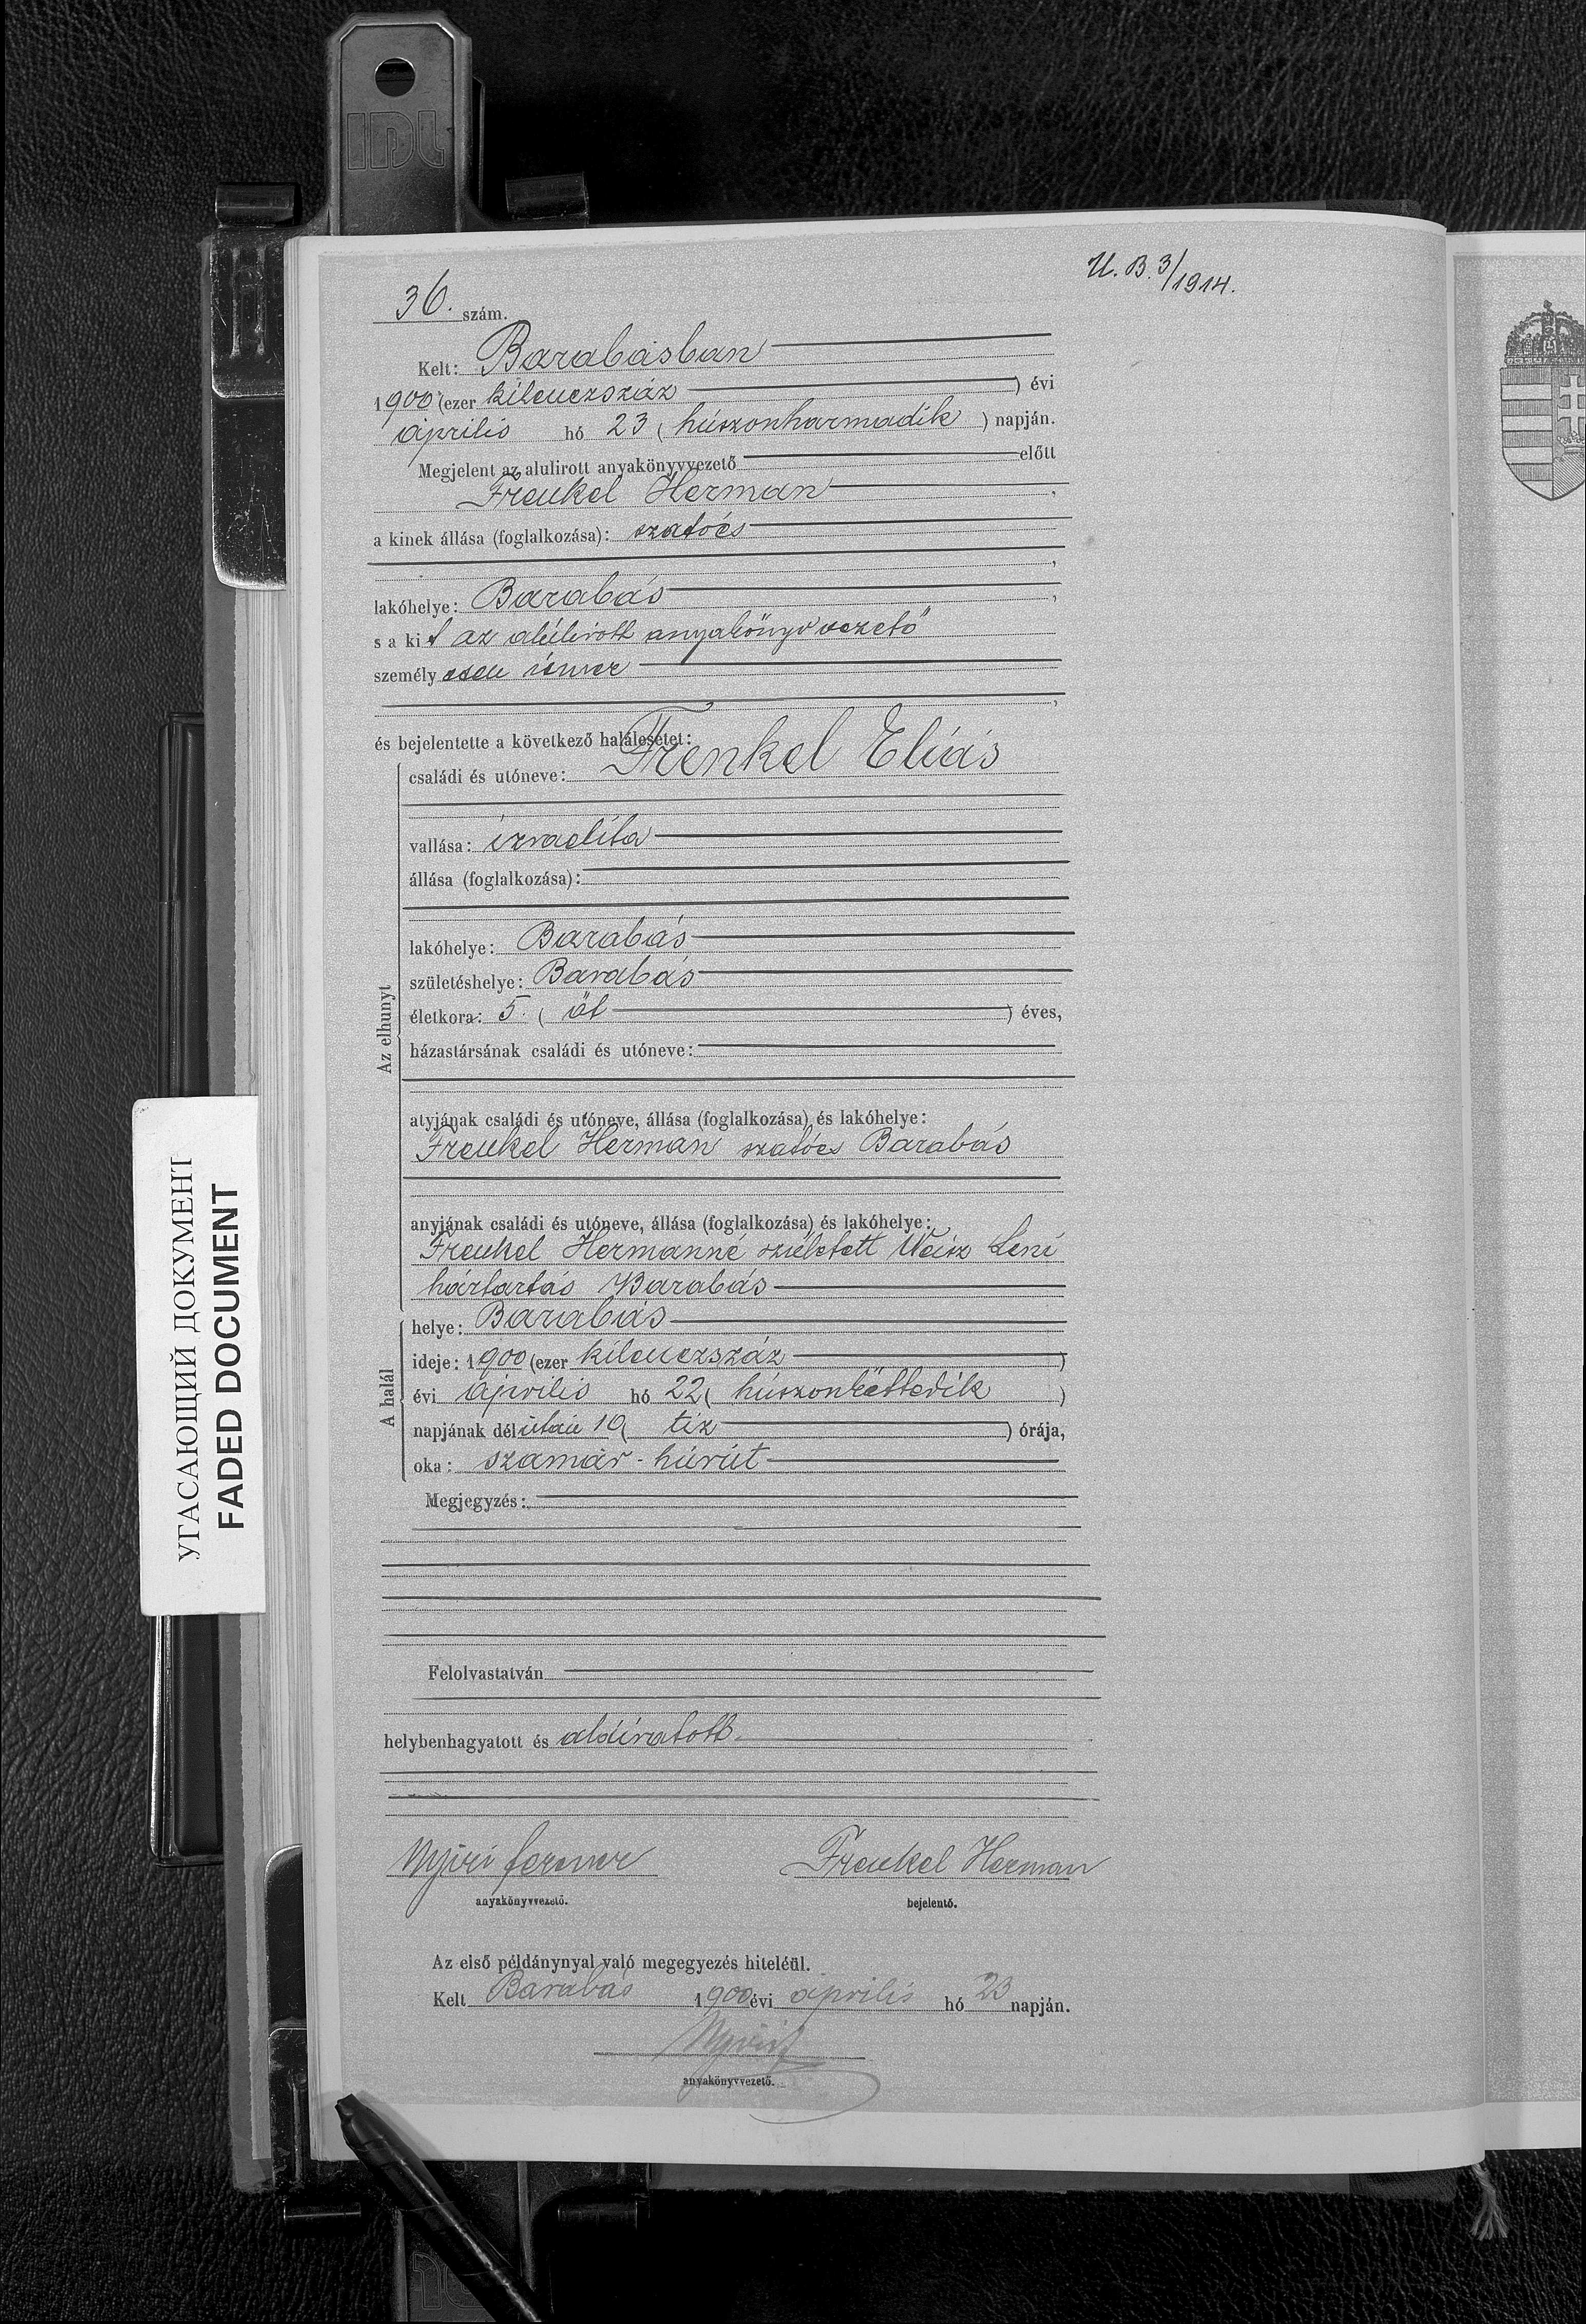 IDL
U. B. 3/1914.
36. szám.
Kelt: Barabásban
1900 (ezer kilenczszáz ) évi
április hó 23 ( húszonharmadik ) napján.
Megjelent az alulirott anyakönyvvezető előtt
Frenkel Herman ,
a kinek állása (foglalkozása): szatócs
,
lakóhelye: Barabás ,
s a kit az alúlirott anyakönyvvezető
személyesen ismer
,
és bejelentette a következő halálesetet:
Az elhunyt
családi és utóneve: Frenkel Eliás
vallása: izraelita
állása (foglalkozása):
lakóhelye: Barabás
születéshelye: Barabás
életkora: 5. ( öt ) éves,
házastársának családi és utóneve:
atyjának családi és utóneve, állása (foglalkozása) és lakóhelye:
Frenkel Herman szatócs Barabás
anyjának családi és utóneve, állása (foglalkozása) és lakóhelye:
Frenkel Hermanné született Weisz Leni
háztartás Barabás
A halál
helye: Barabás
ideje: 1900 (ezer kilenczszáz )
évi április hó 22 ( húszonkettedik )
napjának délután 10 ( tiz ) órája,
oka: szamár-húrút
Megjegyzés:
Felolvastatván
helybenhagyatott és aláiratott.
Nyiri ferencz Frenkel Herman
anyakönyvvezető. bejelentő.
Az első példánynyal való megegyezés hiteléül.
Kelt Barabás 1900 évi április hó 23 napján.
Nyiri f
anyakönyvvezető.
УГАСАЮЩИЙ ДОКУМЕНТ
FADED DOCUMENT